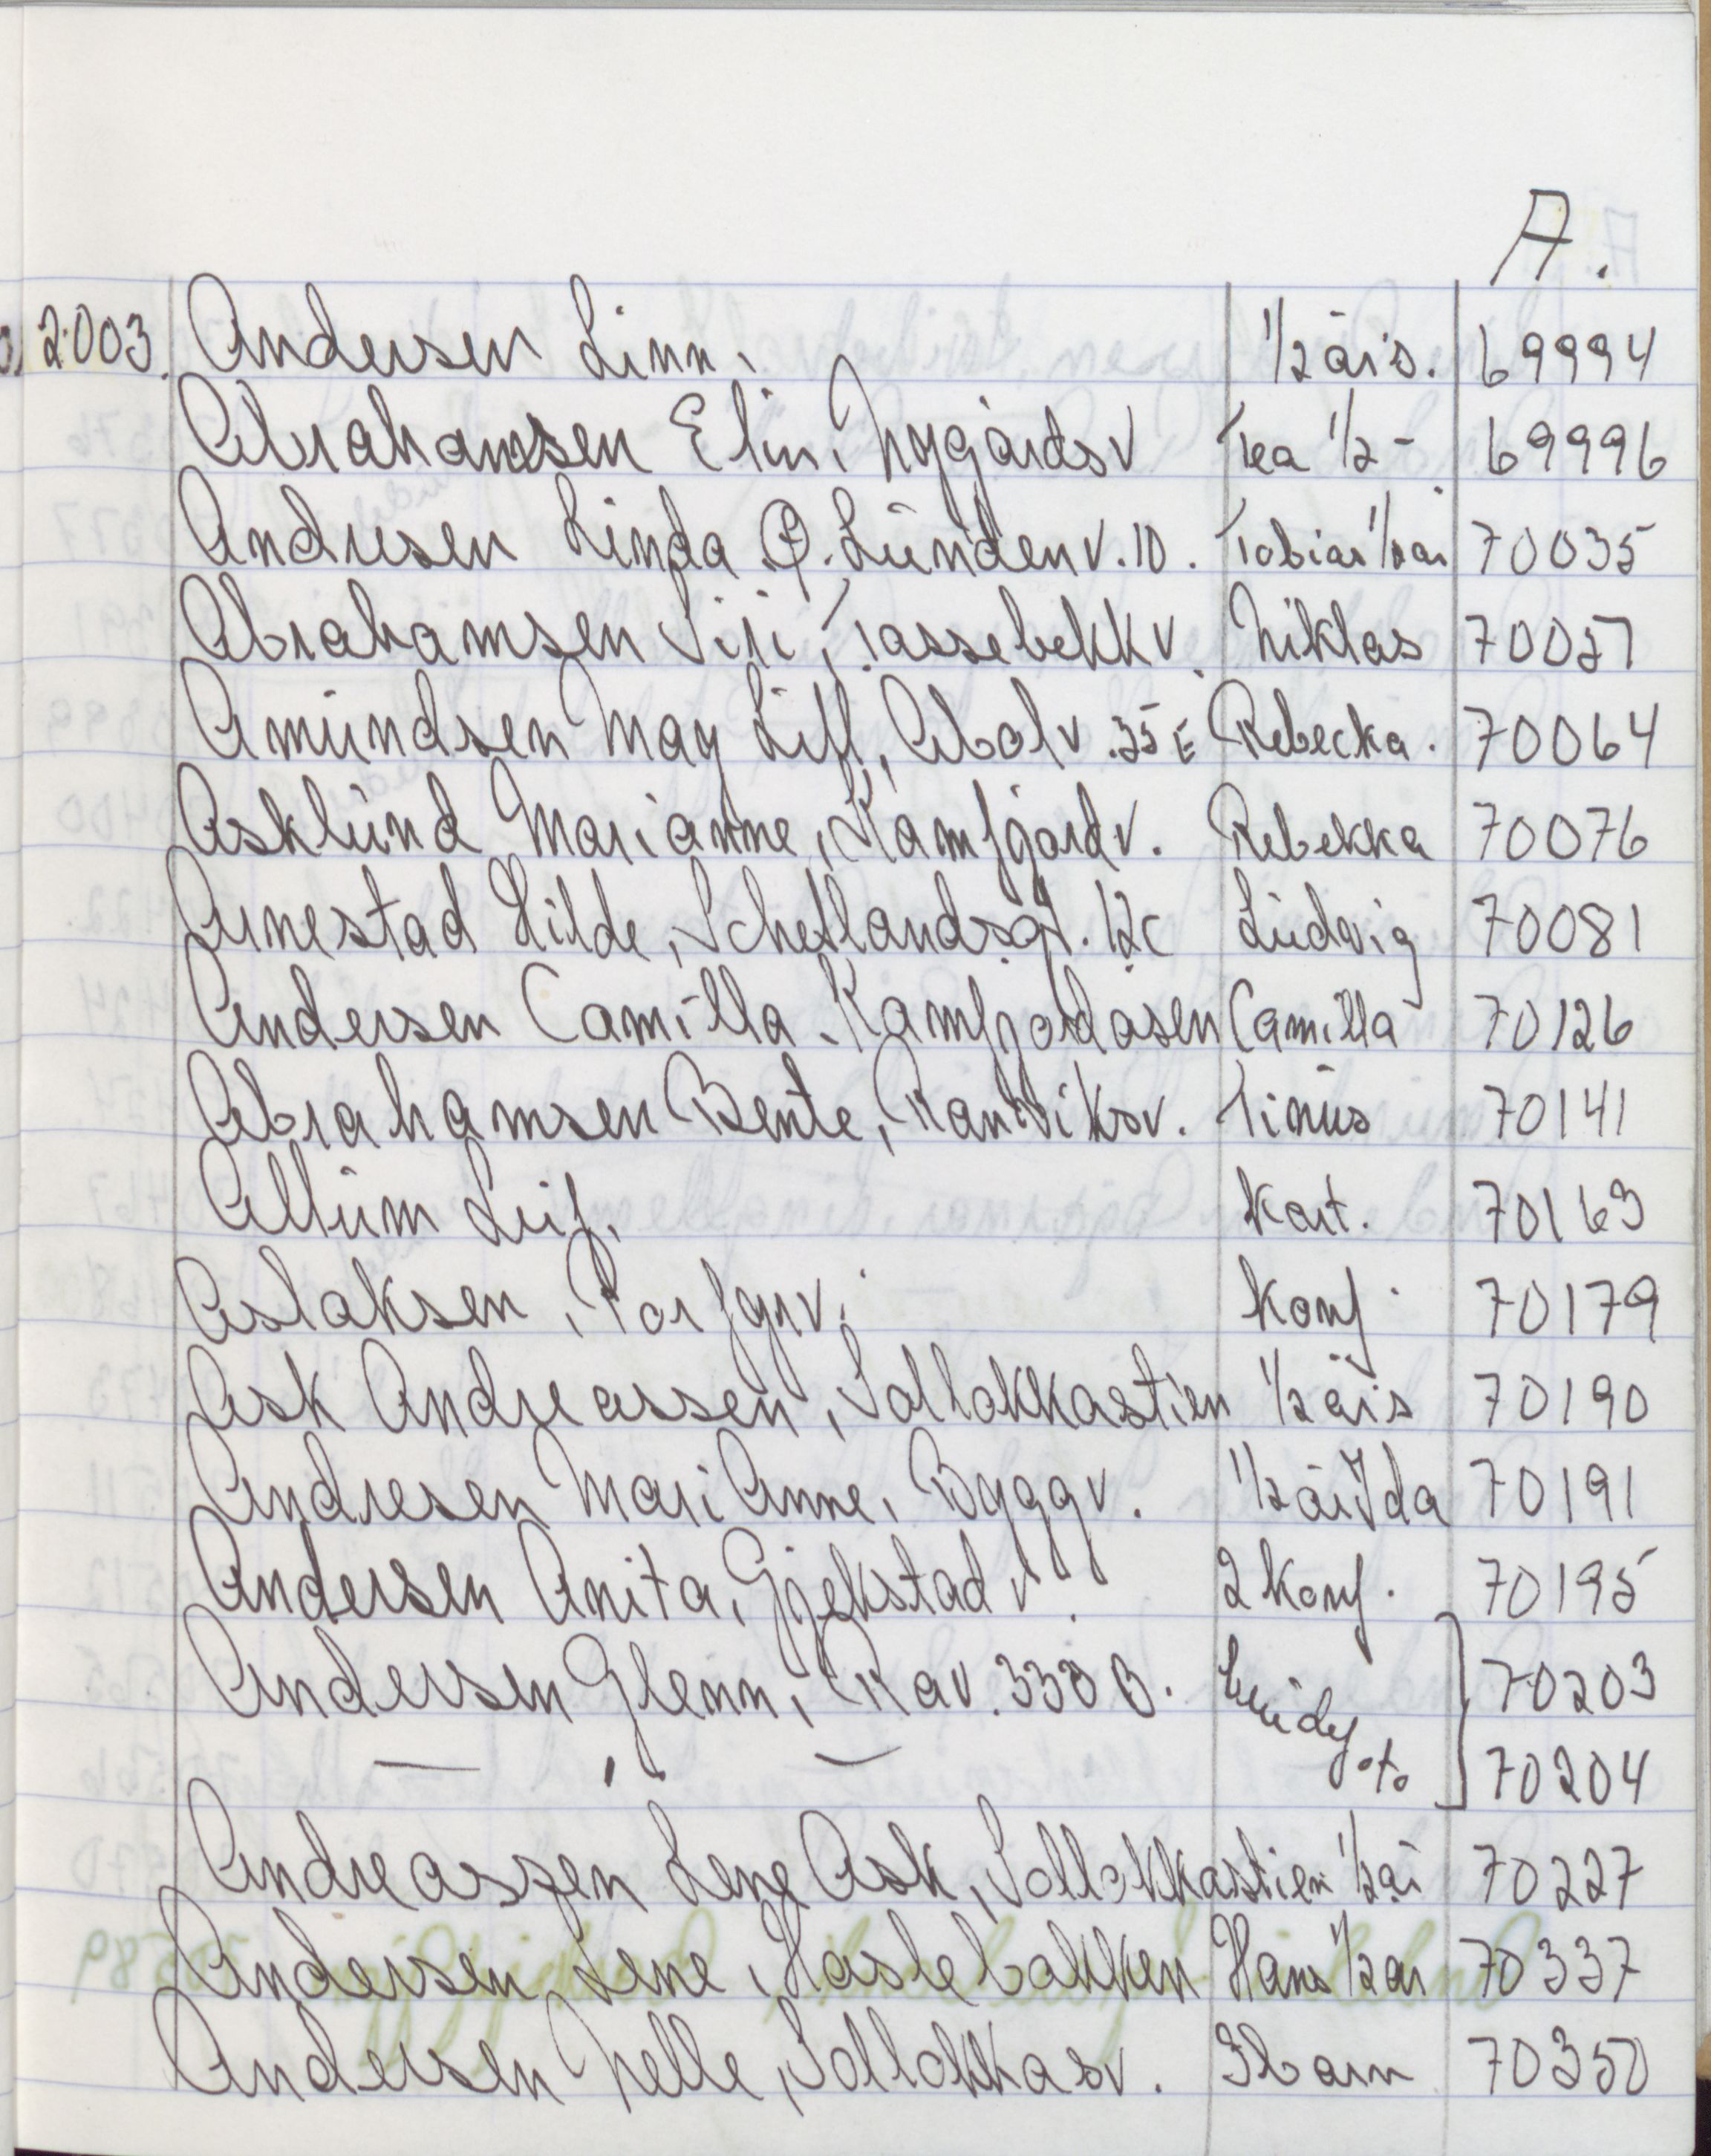 A.
2003. Andersen Linn, 1/2 års. 69994
Abrahamsen Elin, Nygårdsv Tea 1/2 - 69996
Andresen Linda Ø. Lundenv. 10. Tobias 1/2 år 70035
Abrahamsen Siri, Tassebekkv. Niklas 70057
Amundsen May Lill, Abolv. 35 E Rebecka. 70064
Asklund Marianne, Kamfjordv. Rebekka 70076
Arnestad Hilde, Schetlandsgt. 12c Ludvig 70081
Andersen Camilla. Kamfjordåsen Camilla 70126
Abrahamsen Bente, Ranviksv. Tinius 70141
Allum Leif, Kart. 70163
Aslaksen, Porfyrv. Konf. 70179
Ask Andreassen, Solløkkastien 1/2 års 70190
Andresen Mari Anne, Byggv. 1/2 år Ida 70191
Andersen Anita, Gjekstadv. 2 Konf. 70195
Andersen Glenn, Rav. 330 B. 70203
— " — 70204
Andreassen Lene Ask, Solløkkastien 1/2 år 70227
Andersen Lene, Haslebakken Hans 1/2 år 70337
Andersen Nelle, Solløkkasv. 3 barn 70350